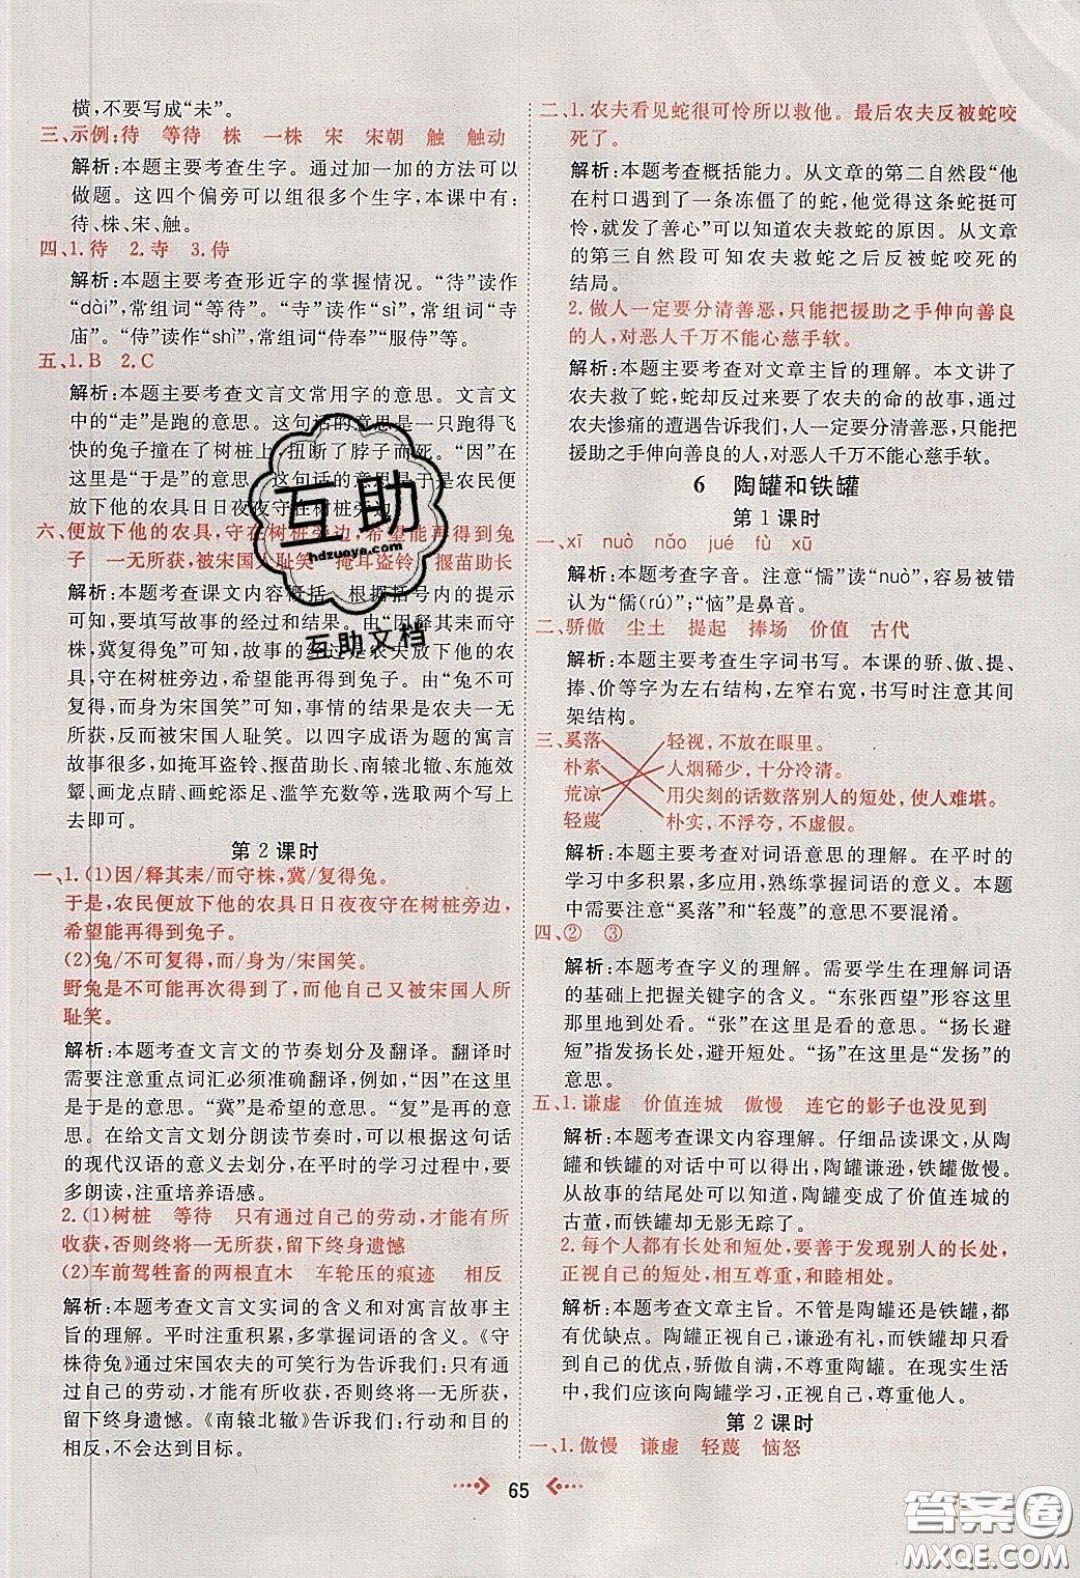 横,不要写成“未”。
三、示例:待 等待 株 一株 宋 宋朝 触 触动
解析:本题主要考查生字。通过加一加的方法可以
做题。这四个偏旁可以组很多个生字,本课中有:
待、株、宋、触。
四、1.待 2.寺 3.侍
解析:本题主要考查形近字的掌握情况。“待”读作
“dài”,常组词“等待”。“寺”读作“sì”,常组词“寺
庙”。“侍”读作“shì”,常组词“侍奉”“服侍”等。
五、1.B 2.C
解析:本题主要考查文言文常用字的意思。文言文
中的“走”是跑的意思。这句话的意思是一只跑得飞
快的兔子撞在了树桩上,扭断了脖子而死。“因”在
这里是“于是”的意思。这句话的意思是于是,农民便
放下他的农具日日夜夜守在树桩旁边。
六、便放下他的农具,守在树桩旁边,希望能再得到兔
子 一无所获,被宋国人耻笑 掩耳盗铃 揠苗助长
解析:本题考查课文内容概括。根据括号内的提示
可知,要填写故事的经过和结果。根据“因释其耒而守
株,冀复得兔”可知,故事的经过是农夫放下他的农
具,守在树桩旁边,希望能再得到兔子。由“兔不可
复得,而身为宋国笑”可知,事情的结果是农夫一无
所获,被宋国人耻笑。以四字成语为题的寓言
故事很多,如掩耳盗铃、揠苗助长、南辕北辙、东施效
颦、画龙点睛、画蛇添足、滥竽充数等,挑两个写上
去即可。
第2课时
一、1.(1)因/释其耒/而守株,冀/复得兔。
于是,农民便放下他的农具日日夜夜守在树桩旁边,
希望能再得到兔子。
(2)兔/不可复得,而/身为/宋国笑。
野兔是不可能再次得到了,而他自己又被宋国人所
耻笑。
解析:本题考查文言文的节奏划分及翻译。翻译时
需要注意重点词汇必须准确翻译,例如,“因”在这里
是于是的意思。“冀”是希望的意思。“复”是再的意
思。在给文言文划分朗读节奏时,可以根据这句话
的现代汉语的意义去划分,在平时的学习过程中,要
多朗读,注重培养语感。
2.(1)树桩 等待 只有通过自己的劳动,才能有所
收获,否则终将一无所获,留下终身遗憾
(2)车前驾牲畜的两根直木 车轮压的痕迹 相反
解析:本题考查文言文实词的含义和对寓言故事主
旨的理解。平时注重积累,多掌握词语的含义。《守
株待兔》通过宋国农夫的可笑行为告诉我们:只有通
过自己的劳动,才能有所收获,否则终将一无所获,
留下终身遗憾。《南辕北辙》告诉我们:行动和目的
相反,不会达到目标。
二、1.农夫看见蛇很可怜所以救他。最后农夫反被蛇咬
死了。
解析:本题考查概括能力。从文章的第二自然段“他
在村口遇到了一条冻僵了的蛇,他觉得这条蛇挺可
怜,就发了善心”可以知道农夫救蛇的原因。从文章
的第三自然段可知农夫救蛇之后反被蛇咬死的
结局。
2.做人一定要分清善恶,只能把援助之手伸向善良
的人,对恶人千万不能心慈手软。
解析:本题主要考查对文章主旨的理解。本文讲了
农夫救了蛇,蛇却反过来要了农夫的命的故事,通过
农夫惨痛的遭遇告诉我们,人要分清善恶,只能把
援助之手伸向善良的人,对恶人千万不能心慈手软。
6 陶罐和铁罐
第1课时
一、xī nuò nǎo jué fù xū
解析:本题考查字音。注意“懦”读“nuò”,容易被错
读为“儒(rú)”;“恼”是鼻音。
二、骄傲 尘土 提起 捧场 价值 古代
解析:本题主要考查生字词书写。本课的骄、傲、提、
捧、价等字为左右结构,左窄右宽,书写时注意其间
架结构。
三、奚落 轻视,不放在眼里。
朴素 人烟稀少,十分冷清。
荒凉 用尖刻的话数落别人的短处,使人难堪。
轻蔑 朴实,不浮夸,不虚假。
解析:本题主要考查对词语意思的理解。在平时的
学习中多积累,多阅读,熟练掌握词语的意义。本题
中需要注意“奚落”和“轻蔑”的意思不要混淆。
四、② ③
解析:本题考查字义的理解。需要学生在理解词语
的基础上把握关键字的含义。“东张西望”形容这里
那里到处看。“张”在这里是看的意思。“扬长避
短”指发扬长处,避开短处。“扬”在这里是“发扬”
的意思。
五、1.谦虚 价值连城 傲慢 连它的影子也没见到
解析:本题考查课文内容理解。仔细品读课文,从陶
罐和铁罐的对话中可以看出,陶罐谦逊,铁罐傲慢。
从故事的结尾处可知,陶罐成了价值连城的
古董,而铁罐却无影无踪了。
2.每个人都有长处和短处,要善于发现别人的长处,
正视自己的短处,相互尊重,和睦相处。
解析:本题考查文章主旨。不管是陶罐还是铁罐,都
有优缺点。陶罐正视自己,谦逊有礼,而铁罐却只看
到自己的优点,骄傲自满,不尊重陶罐。在现实生活
中,我们应该向陶罐学习,正视自己,尊重他人。
第2课时
一、1.傲慢 谦虚 轻蔑 恼怒
65
互助
hdzuoye.com
互助文档
答案圈
MXQE.COM